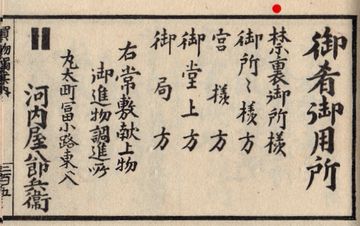 御肴御用所
禁裏御所様
御所〻様方
宮様方
御堂上方
御局方
右常敷献上物
御進物調進所
丸太町富小路東入
河内屋八郎兵衛